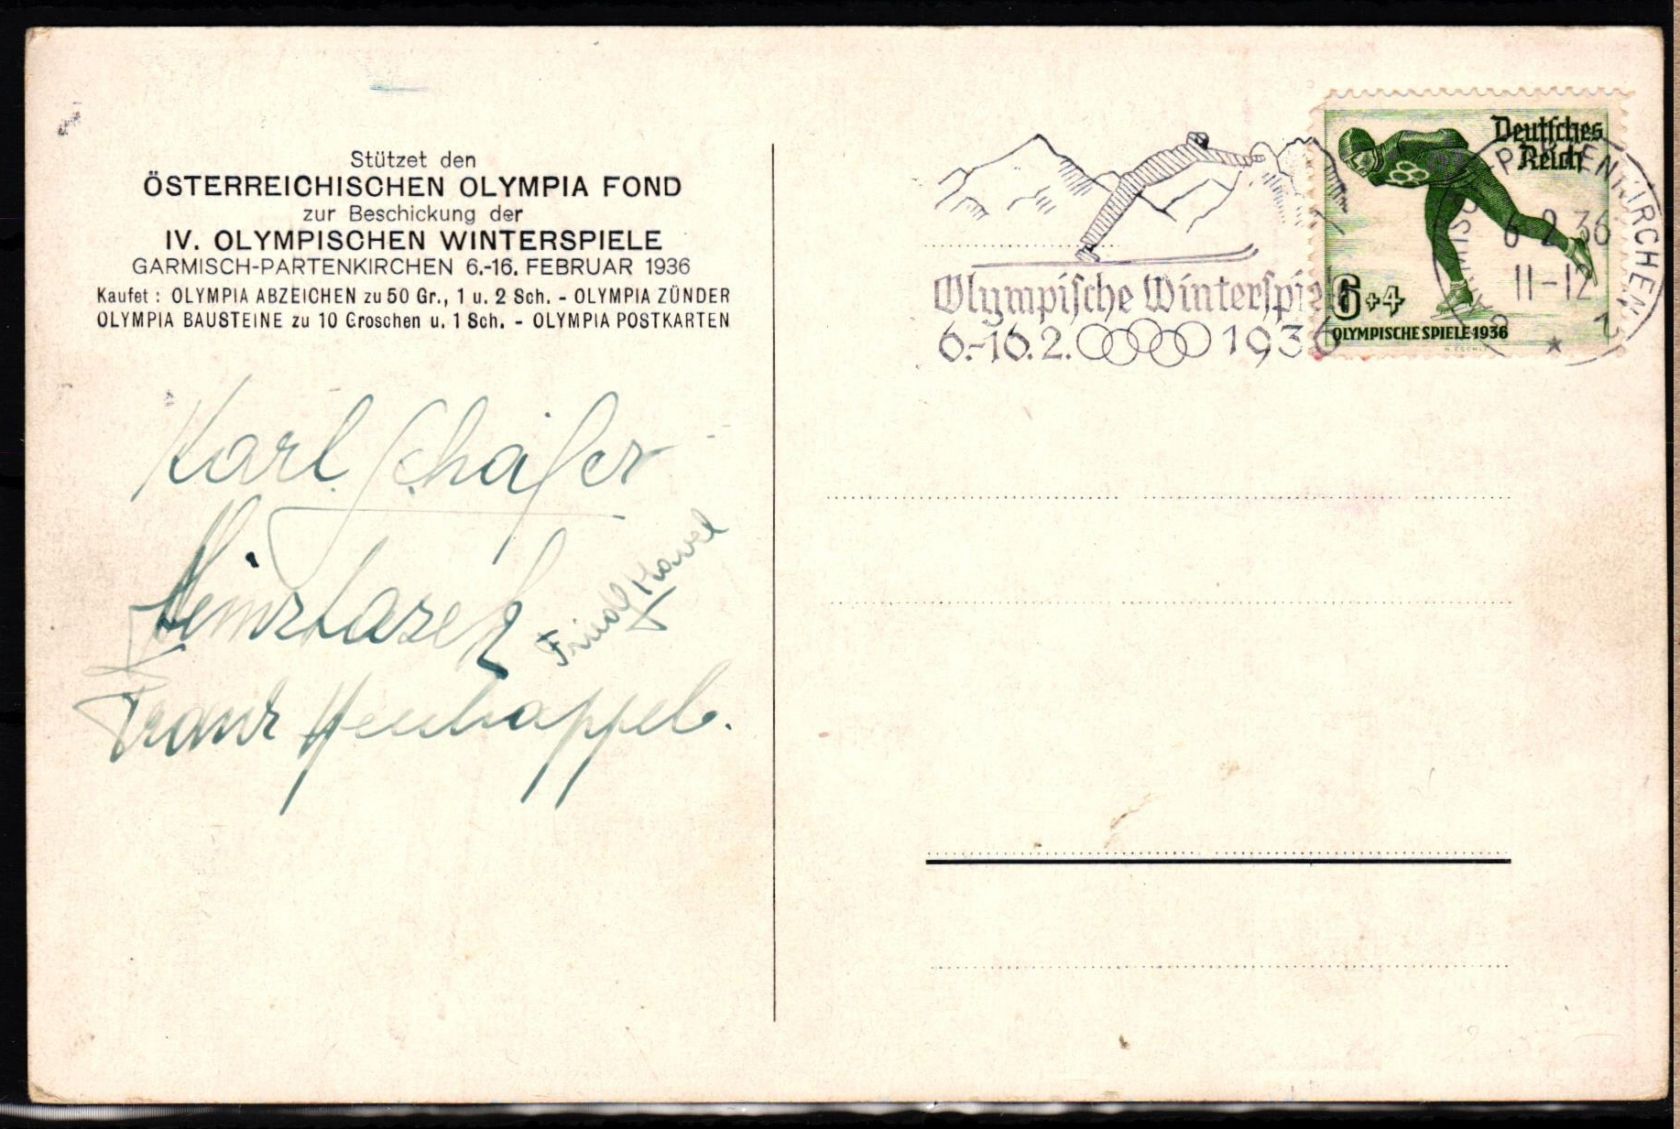 Stützet den
ÖSTERREICHISCHEN OLYMPIA FOND
zur Beschickung der
IV. OLYMPISCHEN WINTERSPIELE
GARMISCH-PARTENKIRCHEN 6.-16. FEBRUAR 1936
Kaufet : OLYMPIA ABZEICHEN zu 50 Gr., 1 u. 2 Sch. - OLYMPIA ZÜNDER
OLYMPIA BAUSTEINE zu 10 Groschen u. 1 Sch. - OLYMPIA POSTKARTEN
Karl Schäfer
Friedl
Franz
Olympische Winterspiele
6.-16.2. 1936
Deutsches
Reich
6+4
OLYMPISCHE SPIELE 1936
GARMISCH-PARTENKIRCHEN
6 2 36
11-12